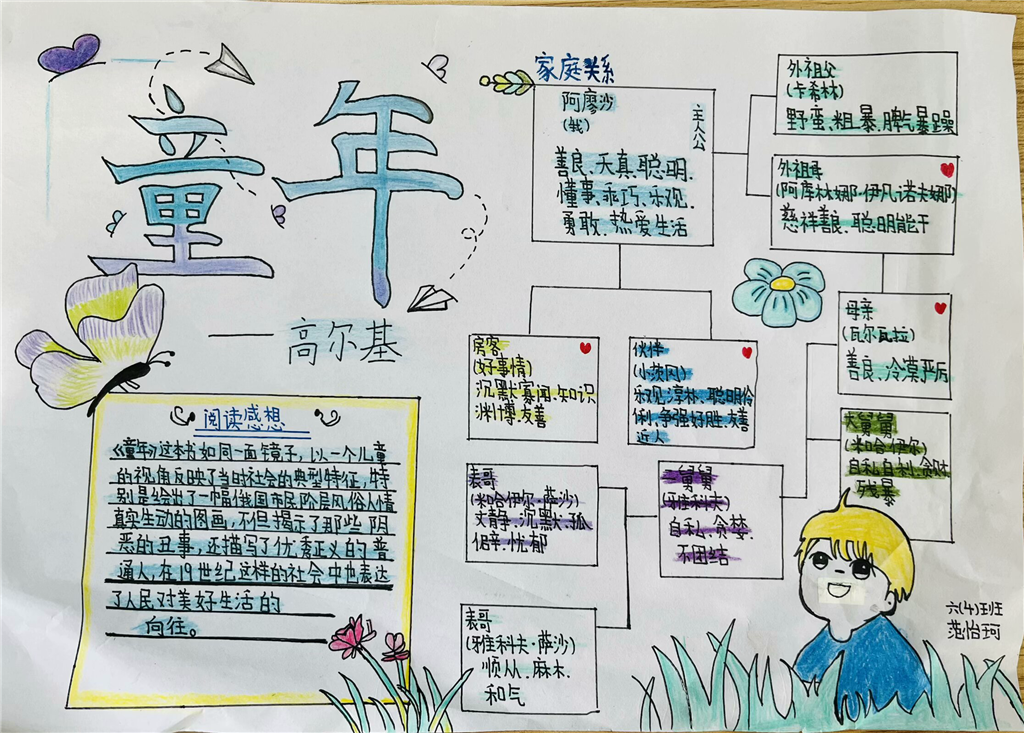 童年
——高尔基
阅读感想
《童年》这本书如同一面镜子,以一个儿童
的视角反映了当时社会的典型特征,特
别是绘出了一幅俄国市民阶层风俗人情
真实生动的图画,不但揭示了那些阴
恶的丑事,还描写了优秀正义的普
通人,在19世纪这样的社会中也表达
了人民对美好生活的
向往。
家庭关系
阿廖沙
(我)
主人公
善良、天真、聪明.
懂事、乖巧、乐观、
勇敢、热爱生活
外祖父
(卡希林)
野蛮、粗暴、脾气暴躁
外祖母
(阿库林娜·伊凡诺夫娜)
慈祥善良、聪明能干
母亲
(瓦尔瓦拉)
善良、冷漠、严厉
房客
(好事情)
沉默寡闻、知识
渊博、友善
伙伴
(小茨冈)
乐观、淳朴、聪明伶
俐、争强好胜、友善
近人
大舅舅
(米哈伊尔)
自私自利、贪财
残暴
二舅舅
(雅科夫)
自私、贪婪.
不团结
表哥
(米哈伊尔·萨沙)
文静、沉默、孤
僻、忧郁
表哥
(雅科夫·萨沙)
顺从、麻木.
和气
六(4)班
范怡珂